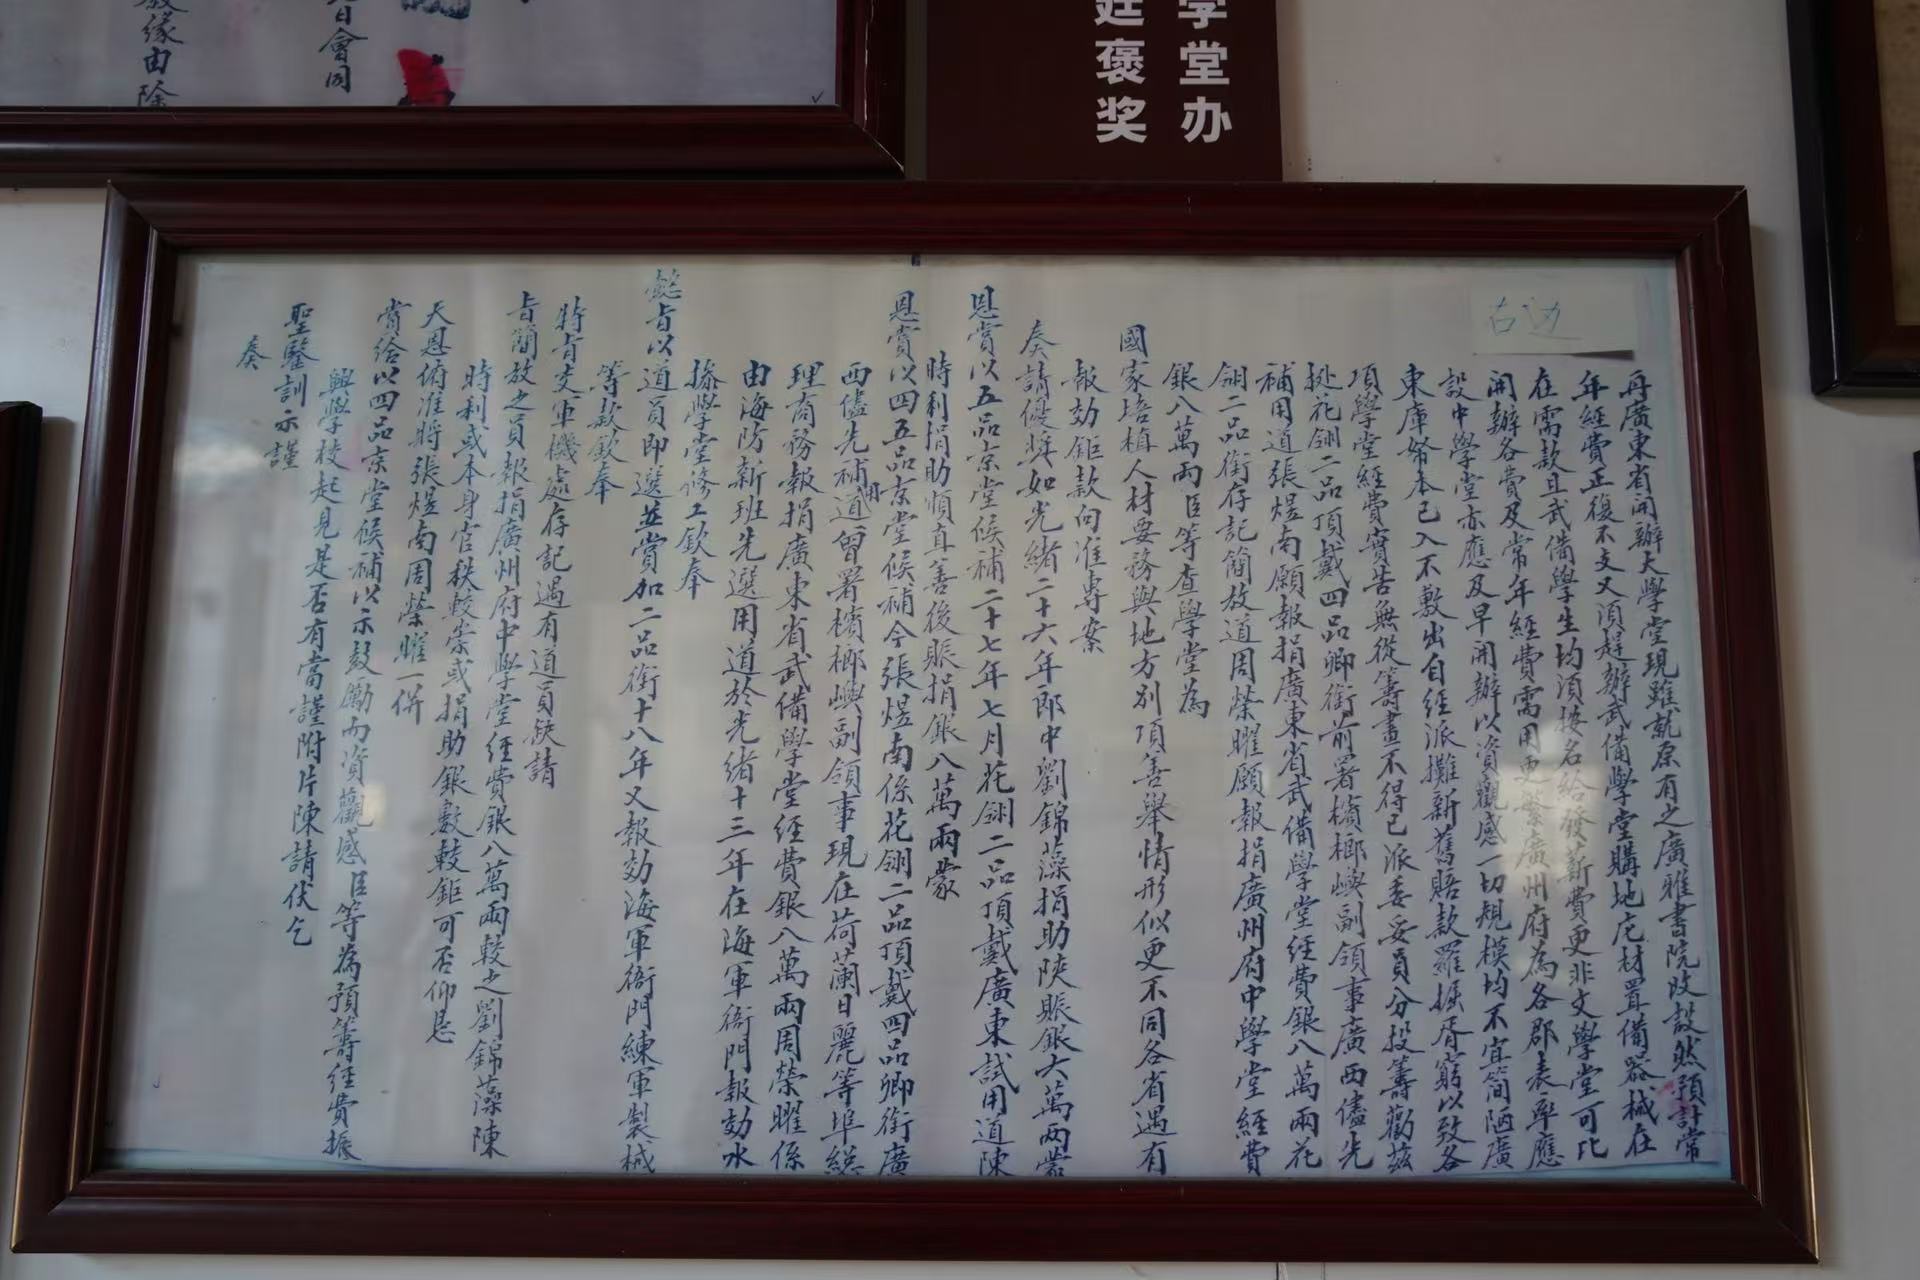 学堂办
廷褒奖
是日會同
教缘由除
右边
再廣東省開辦大學堂現雖就原有之廣雅書院改設然預計常
年經費正復不支又須趕辦武備學堂購地庀材置備器械在
在需款且武備學生均須按名給發薪費更非文學堂可比
開辦各費及常年經費需用更繁廣州府為各郡表率應
設中學堂亦應及早開辦以資觀感一切規模均不宜简陋廣
東庫帑本已入不敷出自經派攤新舊賠款羅掘胥窮以致各
項學堂經費實苦無從籌畫不得已派委妥員分投籌勸茲
據花翎二品頂戴四品卿銜前署檳榔嶼副領事廣西儘先
補用道張煜南願報捐廣東省武備學堂經費銀八萬兩花
翎二品銜存記簡放道周榮曜願報捐廣州府中學堂經費
銀八萬兩臣等查學堂為
國家培植人材要務與地方別項善舉情形似更不同各省遇有
報効鉅款向准專案
奏請優獎如光緒二十六年郎中劉錦藻捐助陝賑銀六萬兩蒙
恩賞以五品京堂候補二十七年七月花翎二品頂戴廣東試用道陳
時利捐助順直善後賑捐銀八萬兩蒙
恩賞以四五品京堂候補今張煜南係花翎二品頂戴四品卿銜廣
西儘先補用道曾署檳榔嶼副領事現在荷蘭日麗等埠総
理商務報捐廣東省武備學堂經費銀八萬兩周榮曜係
由海防新班先選用道於光緒十三年在海軍衙門報効水
操學堂修工欽奉
懿旨以道員即選並賞加二品銜十八年又報効海軍衙門練軍製械
等款欽奉
特旨交軍機處存記遇有道員缺請
旨簡放之員報捐廣州府中學堂經費銀八萬兩較之劉錦藻陳
時利或本身官秩較崇或捐助銀數較鉅可否仰懇
天恩俯准將張煜南周榮曜一併
賞給以四品京堂候補以示鼓勵而資觀感臣等為預籌經費振
興學校起見是否有當謹附片陳請伏乞
聖鑒訓示謹
奏